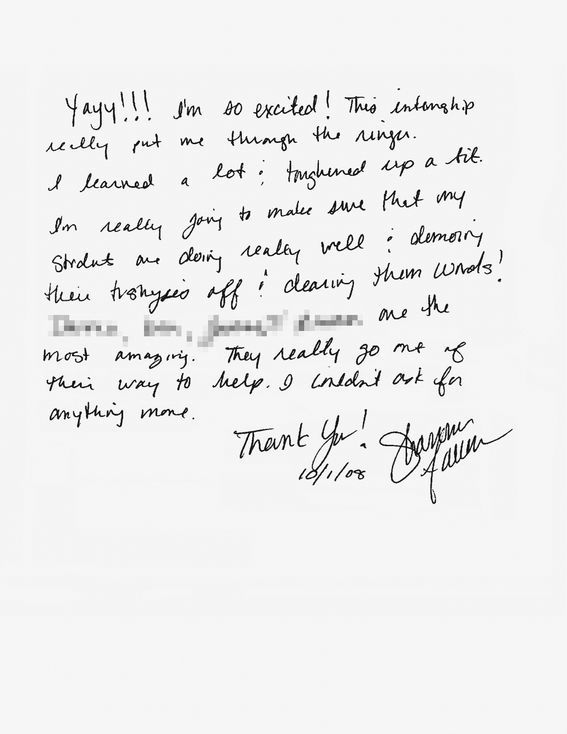 Yayy!!! I'm so excited! This internship
really put me through the ringer.
I learned a lot & toughened up a bit.
I'm really going to make sure that my
students are doing really well &
their off & clearing them words!
are the
most amazing. They really go out of
their way to help. I couldn't ask for
anything more.
Thank You!
10/1/08